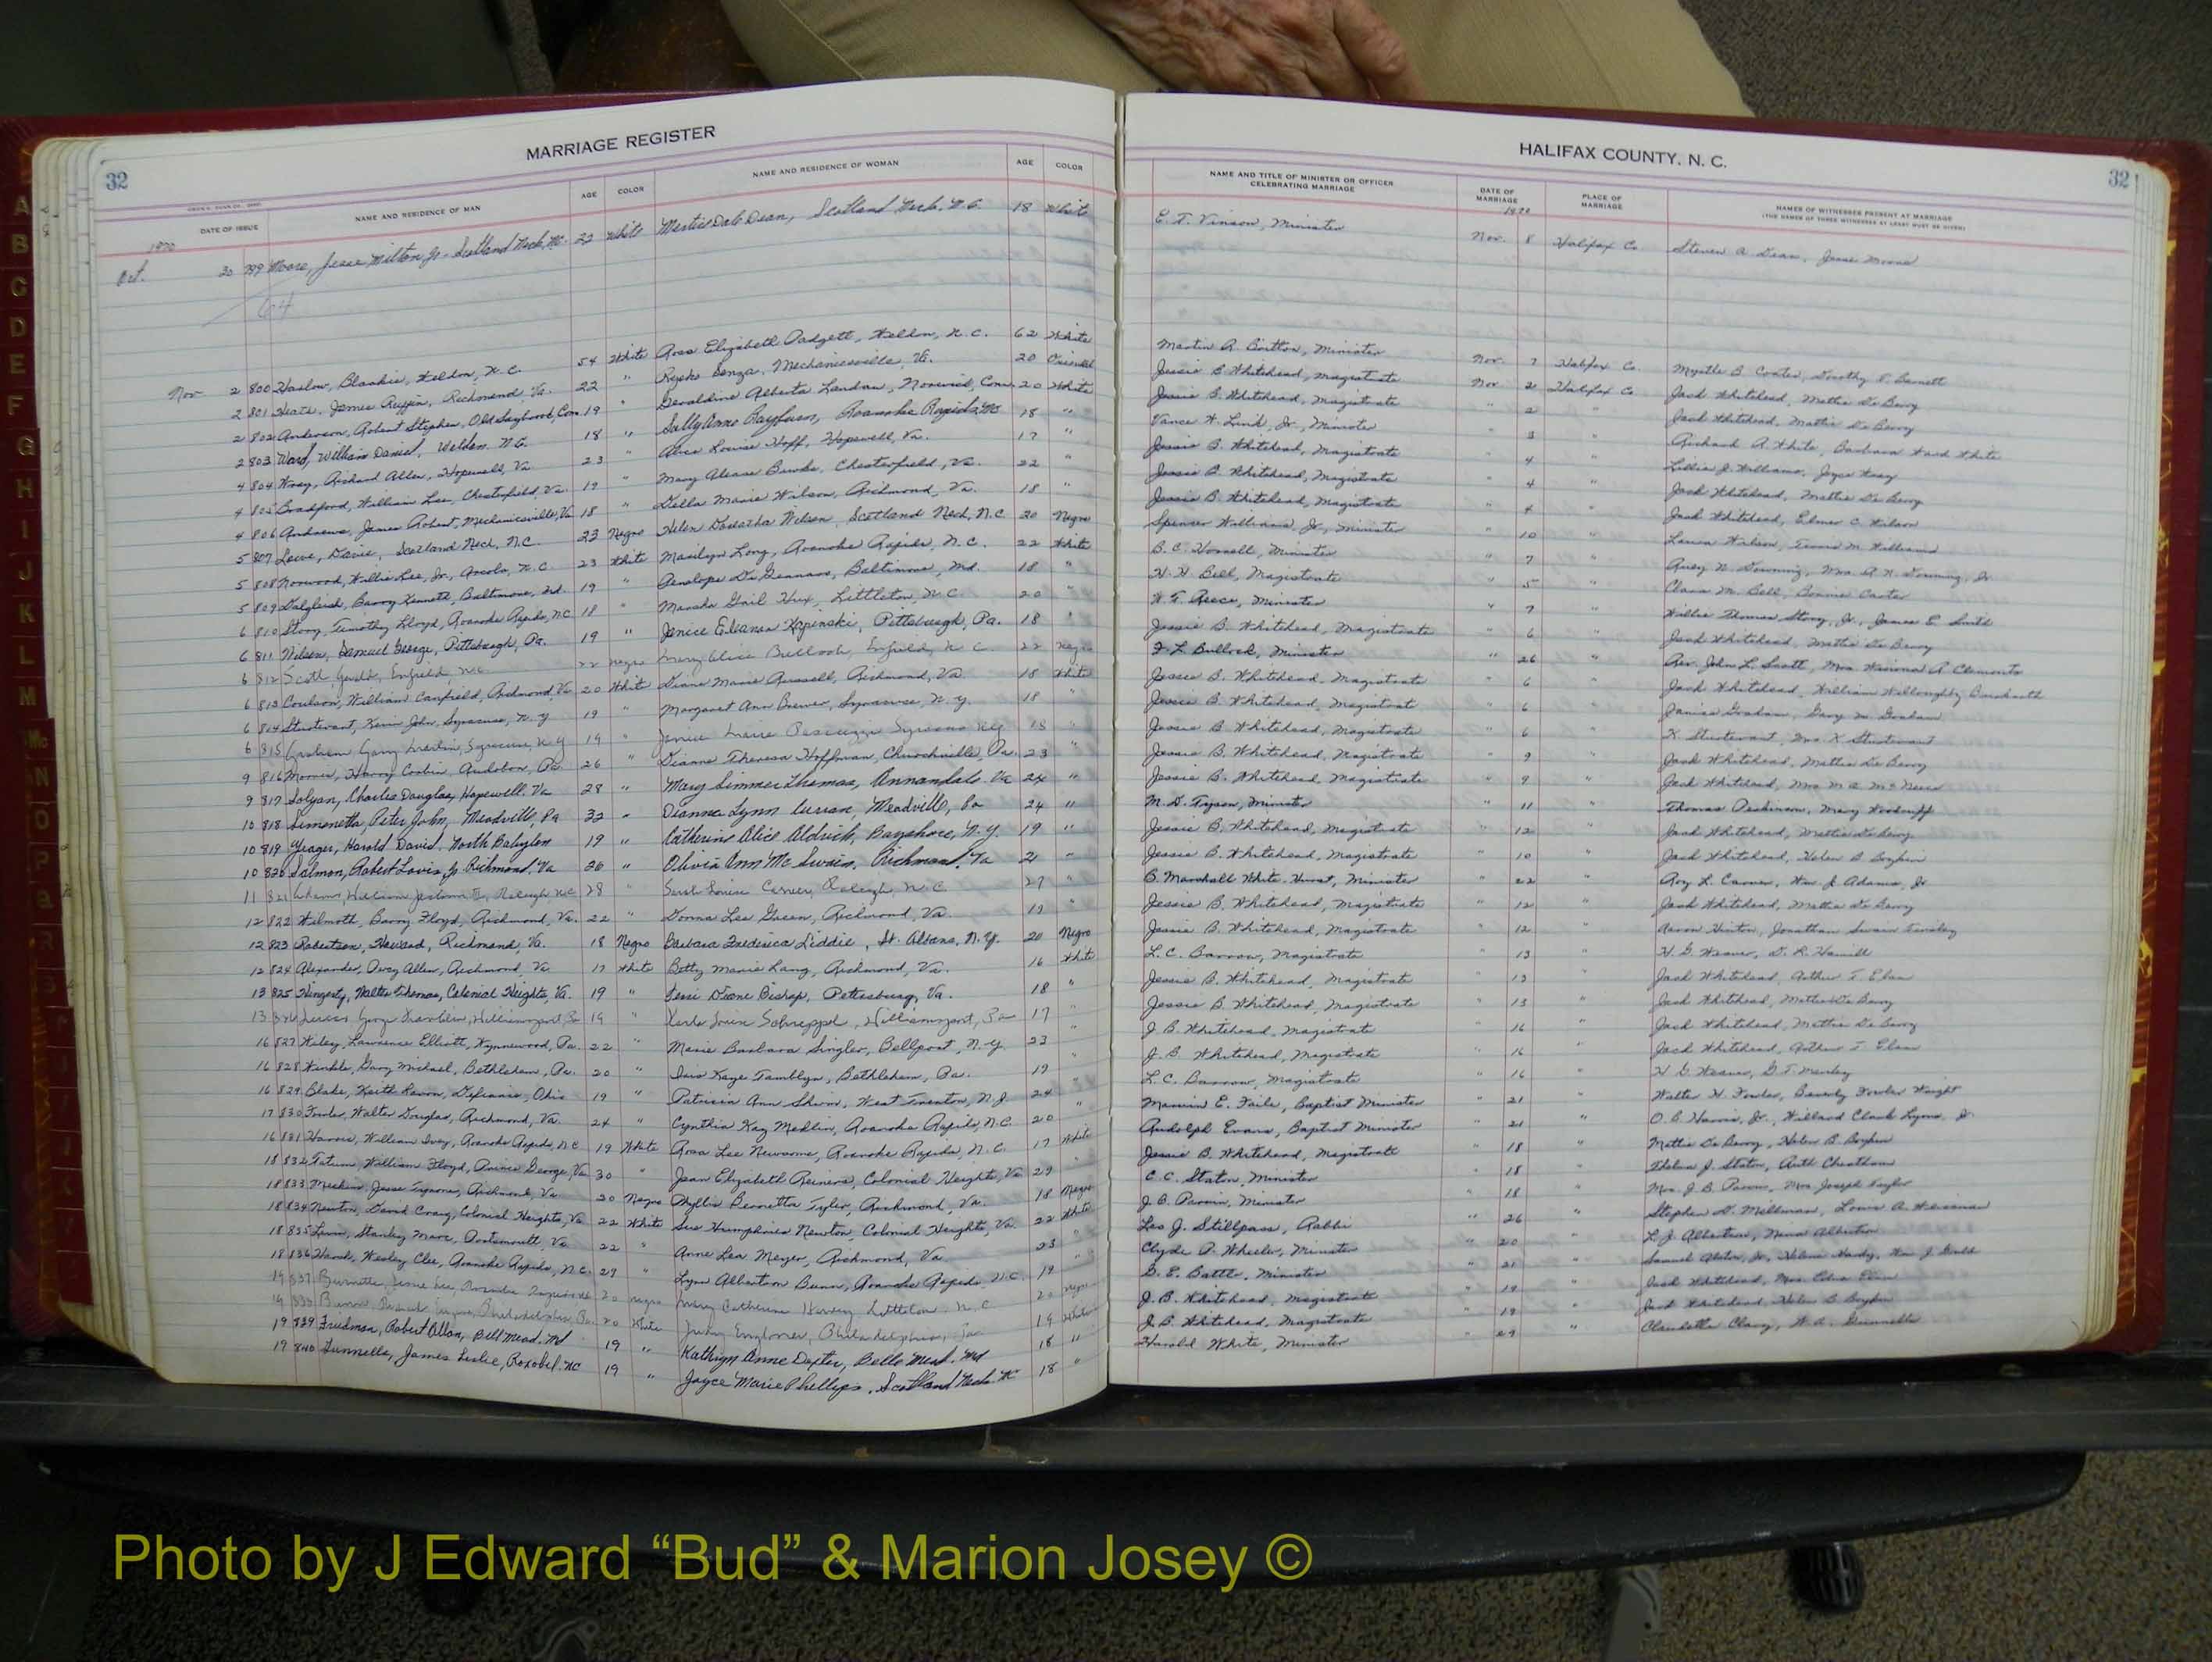 MARRIAGE REGISTER
32
DATE OF ISSUE NAME AND RESIDENCE OF MAN AGE COLOR NAME AND RESIDENCE OF WOMAN AGE COLOR
1970
Oct. 30 799 Moore, Jesse Milton, Jr. Scotland Neck, NC. 22 White Dean, Scotland Neck, N.C. 18 White
64
Nov 2 800 Harlow, Blankie, Weldon, N.C. 54 White Rosa Elizabeth Padgett, Weldon, N.C. 62 White
2 801 James Ruffin, Richmond, Va. 22 " Mechanicsville, Va. 20 Oriental
2 802 Anderson, Robert Stephen, Old Saybrook, Con. 19 " Geraldine Alberta Landan, Norwich, Conn. 20 White
2 803 Ward, William Daniel, Weldon N.C. 18 " Sally Anne Rayburn, Roanoke Rapids, NC 18 "
4 804 Richard Allen, Hopewell, Va 23 " Alice Louise Hoff, Hopewell, Va. 17 "
4 805 Bradford, William Lee, Chesterfield, Va. 19 " Mary Burke, Chesterfield, Va. 22 "
4 806 Andrews, James Robert, Mechanicsville, Va 18 " Della Marie Wilson, Richmond, Va. 18 "
5 807 Lowe, Davie, Scotland Neck, N.C. 23 Negro Helen Wilson, Scotland Neck, N.C. 20 Negro
5 808 Norwood, Willie Lee, Jr., Arcola, N.C. 23 White Marilyn Long, Roanoke Rapids, N.C. 22 White
5 809 Dalgleish, Barry Kenneth, Baltimore, Md. 19 " Penelope Baltimore, Md. 18 "
6 810 Story, Timothy Lloyd, Roanoke Rapids, NC 18 " Marsha Gail Hux, Littleton, N.C. 20 "
6 811 Nelson, Samuel George, Pittsburgh, Pa. 19 " Janice Kapinski, Pittsburgh, Pa. 18 "
6 812 Scott, Enfield, N.C. 22 Negro Mary Alice Bullock, Enfield, N.C. 22 Negro
6 813 Coulson, William Canfield, Richmond, Va 20 White Diane Marie Russell, Richmond, Va 18 White
6 814 Sturtevant, Kevin John, Syracuse, N.Y 19 " Margaret Ann Brewer, Syracuse, N.Y. 18 "
6 815 Graham Gary Martin, Syracuse, N.Y 19 " Janice Marie Syracuse N.Y 18 "
9 816 Morris, Harry Corbin, Audubon, Pa. 26 " Dianne Theresa Hoffman, Churchville, Pa. 23 "
9 817 Solyan, Charles Douglas, Hopewell, Va 28 " Mary Simmer Thomas, Annandale, Va 24 "
10 818 Simonetta, Peter John, Meadville, Pa 32 " Dianna Lynn Curran, Meadville, Pa 24 "
10 819 Yeager, Harold David, North Babylon 19 " Catherine Alice Aldrich, Bayshore, N.Y. 19 "
10 820 Salmon, Robert Louis, Jr. Richmond, Va 26 " Olivia Ann McSwain, Richmond, Va 21 "
11 821 William Raleigh N.C 28 " Sarah Louise Carver, Raleigh, N.C. 27 "
12 822 Wilmoth, Barry Floyd, Richmond, Va. 22 " Donna Lee Green, Richmond, Va. 19 "
12 823 Robertson, Howard, Richmond, Va. 18 Negro Barbara Frederica Liddie, St. Albans, N.Y. 20 Negro
12 824 Alexander, Percy Allen, Richmond, Va 17 White Betty Marie Lang, Richmond, Va. 16 White
13 825 Walter Thomas, Colonial Heights, Va. 19 " Terri Diane Bishop, Petersburg, Va. 18 "
13 826 George Franklin, Williamsport, Pa 19 " Karla Williamsport, Pa 17 "
16 827 Wiley, Lawrence Elliott, Wynnewood, Pa. 22 " Marie Barbara Singler, Bellport, N.Y. 23 "
16 828 Gary Michael, Bethlehem, Pa. 20 " Kaye Tamblyn, Bethlehem, Pa. 19 "
16 829 Blake, Keith Defiance, Ohio 19 " Patricia Ann West Trenton, N.J 24 "
17 830 Fowler, Walter Douglas, Richmond, Va. 24 " Cynthia Kay Medlin, Roanoke Rapids, N.C. 20 "
16 831 Harris, William Ivey, Roanoke Rapids, N.C. 19 White Rosa Lee Newsome, Roanoke Rapids, N.C. 17 White
18 832 Tatum, William Floyd, Prince George, Va 30 " Jean Elizabeth Colonial Heights, Va 29 "
18 833 Jesse Richmond, Va 20 Negro Phyllis Tyler, Richmond, Va. 18 Negro
18 834 Newton, David Craig, Colonial Heights, Va 22 White Sue Humphries Newton, Colonial Heights, Va. 22 White
18 835 Levin, Stanley Marc, Portsmouth, Va. 22 " Anne Lea Meyer, Richmond, Va 23 "
18 836 Wesley Clee, Roanoke Rapids, N.C. 29 " Lynn Albertson Bunn, Roanoke Rapids, N.C. 19 "
19 837 Burnette, 20 Negro Mary Catherine Littleton, N.C 20 Negro
19 838 Philadelphia, Pa. 20 White Judy Philadelphia, Pa 19 White
19 839 Friedman, Robert Allan, Bell Mead, Md 19 " Kathryn Anne Dexter, Belle Mead, Md 18 "
19 840 Gunnells, James Leslie, Roxobel NC 19 " Joyce Marie Phillips, Scotland Neck NC 18 "
HALIFAX COUNTY, N. C.
32
NAME AND TITLE OF MINISTER OR OFFICER CELEBRATING MARRIAGE DATE OF MARRIAGE PLACE OF MARRIAGE NAMES OF WITNESSES PRESENT AT MARRIAGE
(THE NAMES OF THREE WITNESSES AT LEAST MUST BE GIVEN)
1970
E. T. Vinson, Minister Nov. 8 Halifax Co. Steven A. Dean, Jesse Moore
Martin R. Britton, Minister Nov. 7 Halifax Co. Myrtle B. Coates, Dorothy P. Barnett
Jessie B. Whitehead, Magistrate Nov 2 Halifax Co. Jack Whitehead, Mattie De Berry
Jessie B. Whitehead, Magistrate " 2 " Jack Whitehead, Mattie De Berry
Vance H. Link, Jr., Minister " 3 " Richard A. White, Barbara Ward White
Jessie B. Whitehead, Magistrate " 4 " Lillie J. Williams, Joyce
Jessie B. Whitehead, Magistrate " 4 " Jack Whitehead, Mattie De Berry
Jessie B. Whitehead, Magistrate " 4 " Jack Whitehead, Elmer C. Wilson
Spencer Williams, Jr., Minister " 10 " Wilson, M. Williams
B. C. Minister " 7 " N. Downing, Mrs. A. N. Downing, Jr.
H. H. Bell, Magistrate " 5 " Clara M. Bell, Bonnie Carter
W. T. Reece, Minister " 7 " Willie Thomas Story, Jr., James E. Smith
Jessie B. Whitehead, Magistrate " 6 " Jack Whitehead, Mattie De Berry
F. L. Bullock, Minister " 26 " Rev. John L. Scott, Mrs. Winona A. Clements
Jessie B. Whitehead, Magistrate " 6 " Jack Whitehead, William Willoughby
Jessie B. Whitehead, Magistrate " 6 " Janice Graham, Gary M. Graham
Jessie B. Whitehead, Magistrate " 6 " K. Sturtevant, Mrs. K. Sturtevant
Jessie B. Whitehead, Magistrate " 9 " Jack Whitehead, Mattie De Berry
Jessie B. Whitehead, Magistrate " 9 " Jack Whitehead, Mrs.
M. D. Tyson, Minister " 11 " Thomas Mary Woodruff
Jessie B. Whitehead, Magistrate " 12 " Jack Whitehead, Mattie De Berry
Jessie B. Whitehead, Magistrate " 10 " Jack Whitehead, Helen B. Boykin
B. Marshall White-Hurst, Minister " 22 " Roy L. Carver, Wm. J. Adams, Jr.
Jessie B. Whitehead, Magistrate " 12 " Jack Whitehead, Mattie De Berry
Jessie B. Whitehead, Magistrate " 12 " Aaron Hinton, Jonathan
L. C. Barrow, Magistrate " 13 " H. G. Weaver, D. R. Hamill
Jessie B. Whitehead, Magistrate " 13 " Jack Whitehead, Arthur T. Elam
Jessie B. Whitehead, Magistrate " 13 " Jack Whitehead, Mattie De Berry
J. B. Whitehead, Magistrate " 16 " Jack Whitehead, Mattie De Berry
J. B. Whitehead, Magistrate " 16 " Jack Whitehead, Arthur T. Elam
L. C. Barrow, Magistrate " 16 " H. G. Weaver, G. T. Manley
Marvin E. Faile, Baptist Minister " 21 " Walter H. Fowler, Beverly Fowler Wright
Rudolph Evans, Baptist Minister " 21 " O. B. Harris, Jr., Willard Clark Lynn, Jr.
Jessie B. Whitehead, Magistrate 18 " Mattie De Berry, Helen B. Boykin
C. C. Staton, Minister " 18 " Thelma J. Staton, Ruth Cheatham
J. B. Parvin, Minister " 18 " Mrs. J. B. Parvin, Mrs. Joseph Taylor
Leo J. Stillpass, Rabbi " 26 " Stephen D. Millman, Louis A. Weisman
Clyde P. Wheeler, Minister " 20 " L. J. Albertson, Albertson
D. E. Battle, Minister " 21 " Samuel Jr., Hardy, Wm. J.
J. B. Whitehead, Magistrate " 19 " Jack Whitehead, Mrs. Edna Elam
J. B. Whitehead, Magistrate " 19 " Jack Whitehead, Helen B. Boykin
Harold White, Minister " 29 " Claudette W. A. Gunnells
A
B
C
D
E
F
G
H
I
J
K
L
M
Mc
N
O
P
Q
R
S
Photo by J Edward “Bud” & Marion Josey ©